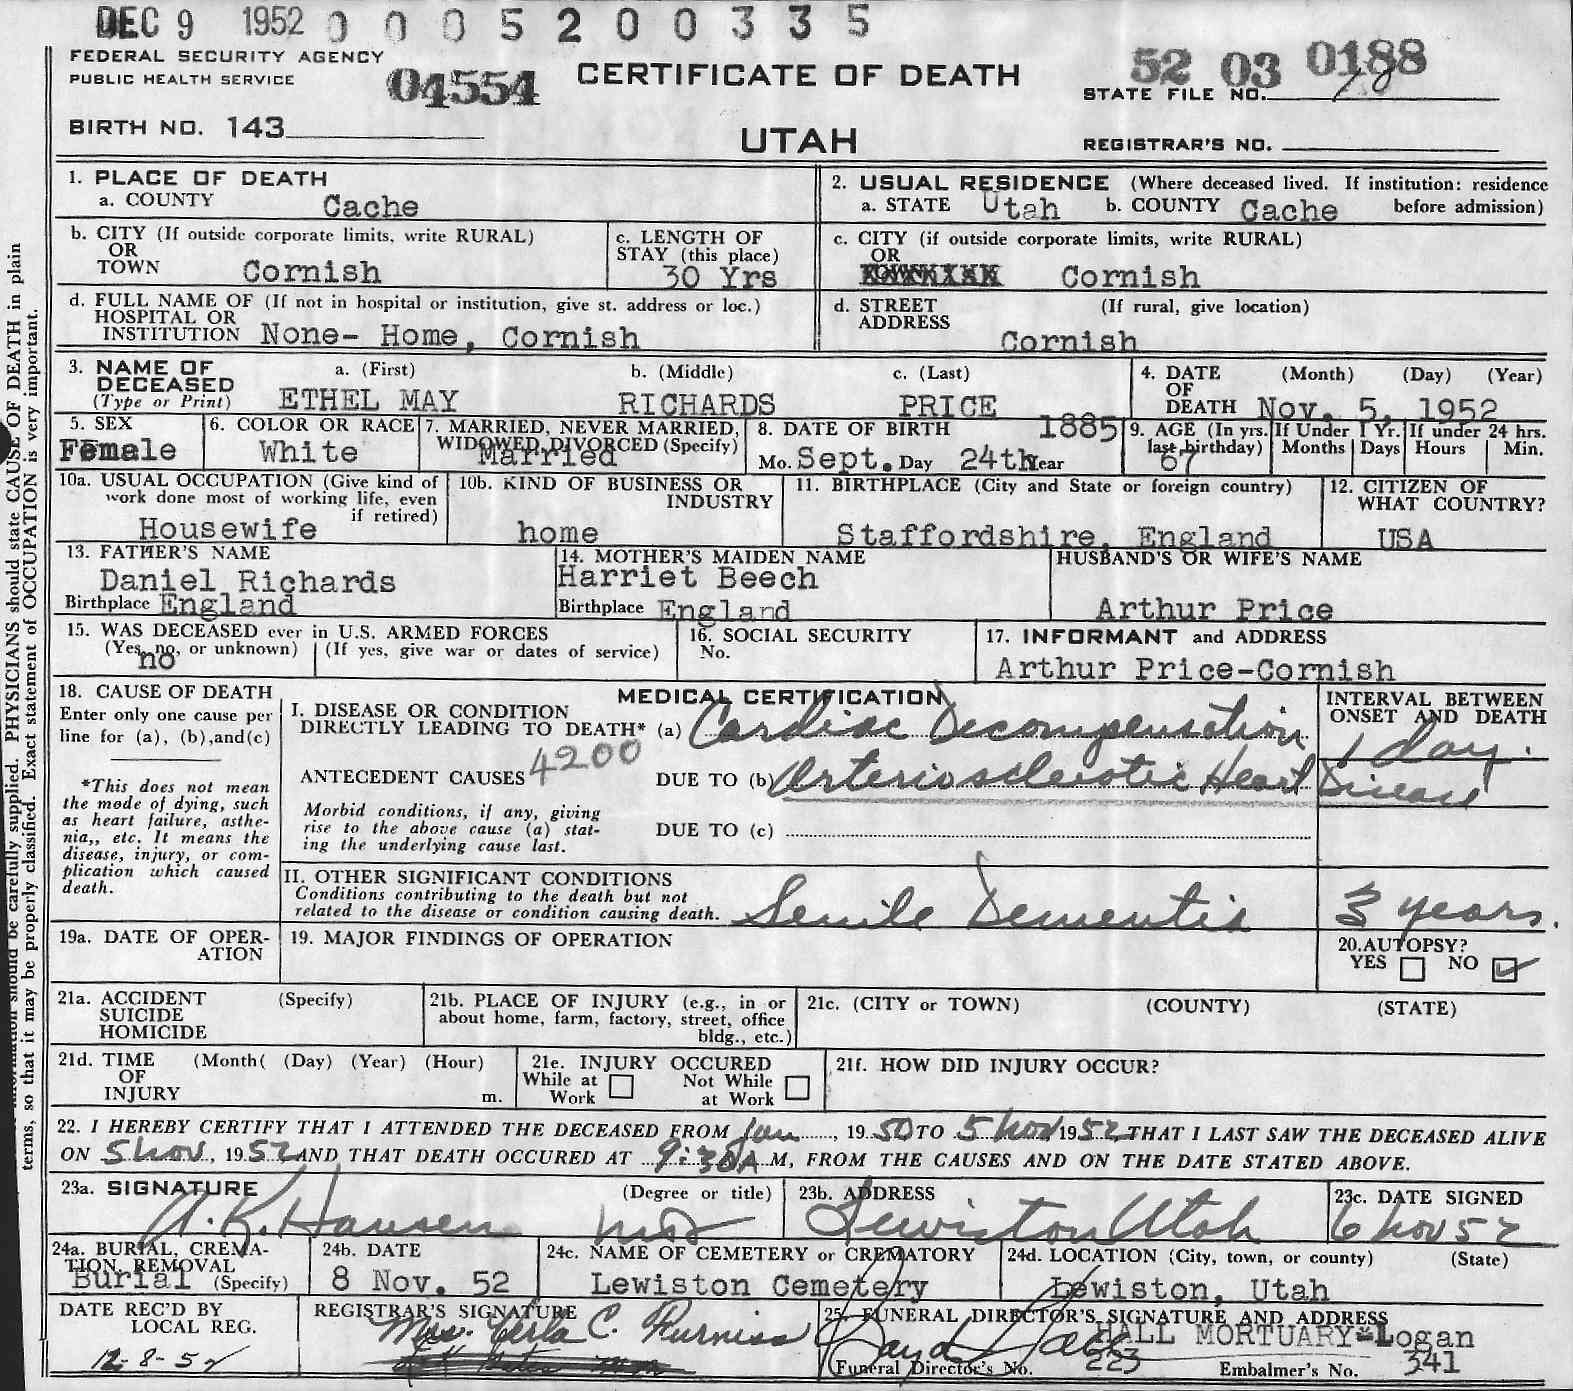 DEC 9 1952 0 0 0 5 2 0 0 3 3 5
FEDERAL SECURITY AGENCY
PUBLIC HEALTH SERVICE
04554
CERTIFICATE OF DEATH
52 03 0188
STATE FILE NO.
BIRTH NO. 143
UTAH
REGISTRAR'S NO.
1. PLACE OF DEATH
a. COUNTY Cache
2. USUAL RESIDENCE (Where deceased lived. If institution: residence before admission)
a. STATE Utah b. COUNTY Cache
b. CITY (If outside corporate limits, write RURAL)
OR
TOWN Cornish
c. LENGTH OF
STAY (this place)
30 Yrs
c. CITY (if outside corporate limits, write RURAL)
OR
Cornish
d. FULL NAME OF (If not in hospital or institution, give st. address or loc.)
HOSPITAL OR
INSTITUTION None- Home, Cornish
d. STREET (If rural, give location)
ADDRESS
Cornish
3. NAME OF
DECEASED
(Type or Print)
a. (First) b. (Middle) c. (Last)
ETHEL MAY RICHARDS PRICE
4. DATE (Month) (Day) (Year)
OF
DEATH Nov. 5, 1952
5. SEX
Female
6. COLOR OR RACE
White
7. MARRIED, NEVER MARRIED,
WIDOWED, DIVORCED (Specify)
Married
8. DATE OF BIRTH 1885
Mo. Sept. Day 24th Year
9. AGE (In yrs. last birthday)
67
If Under 1 Yr.
Months Days
If under 24 hrs.
Hours Min.
10a. USUAL OCCUPATION (Give kind of
work done most of working life, even
if retired)
Housewife
10b. KIND OF BUSINESS OR
INDUSTRY
home
11. BIRTHPLACE (City and State or foreign country)
Staffordshire, England
12. CITIZEN OF
WHAT COUNTRY?
USA
13. FATHER'S NAME
Daniel Richards
Birthplace England
14. MOTHER'S MAIDEN NAME
Harriet Beech
Birthplace England
HUSBAND'S OR WIFE'S NAME
Arthur Price
15. WAS DECEASED ever in U.S. ARMED FORCES
(Yes, no, or unknown) (If yes, give war or dates of service)
no
16. SOCIAL SECURITY
No.
17. INFORMANT and ADDRESS
Arthur Price-Cornish
18. CAUSE OF DEATH
Enter only one cause per
line for (a), (b),and(c)
*This does not mean
the mode of dying, such
as heart failure, asthe-
nia,, etc. It means the
disease, injury, or com-
plication which caused
death.
MEDICAL CERTIFICATION
I. DISEASE OR CONDITION
DIRECTLY LEADING TO DEATH* (a) Cardiac Decompensation
INTERVAL BETWEEN
ONSET AND DEATH
1 day.
4200
ANTECEDENT CAUSES DUE TO (b) Arteriosclerotic Heart Disease
Morbid conditions, if any, giving
rise to the above cause (a) stat-
ing the underlying cause last.
DUE TO (c)
II. OTHER SIGNIFICANT CONDITIONS
Conditions contributing to the death but not
related to the disease or condition causing death. Senile Dementia 3 years.
19a. DATE OF OPER-
ATION
19. MAJOR FINDINGS OF OPERATION
20.AUTOPSY?
YES NO
21a. ACCIDENT (Specify)
SUICIDE
HOMICIDE
21b. PLACE OF INJURY (e.g., in or
about home, farm, factory, street, office
bldg., etc.)
21c. (CITY or TOWN) (COUNTY) (STATE)
21d. TIME (Month( (Day) (Year) (Hour)
OF
INJURY m.
21e. INJURY OCCURED
While at Work Not While at Work
21f. HOW DID INJURY OCCUR?
22. I HEREBY CERTIFY THAT I ATTENDED THE DECEASED FROM Jan, 19 50 TO 5 Nov 19 52 THAT I LAST SAW THE DECEASED ALIVE
ON 5 Nov, 19 52 AND THAT DEATH OCCURED AT 9:30 A M, FROM THE CAUSES AND ON THE DATE STATED ABOVE.
23a. SIGNATURE (Degree or title)
A. K. Hansen MD
23b. ADDRESS
Lewiston Utah
23c. DATE SIGNED
6 Nov 52
24a. BURIAL, CREMA-
TION, REMOVAL
Burial (Specify)
24b. DATE
8 Nov. 52
24c. NAME OF CEMETERY or CREMATORY
Lewiston Cemetery
24d. LOCATION (City, town, or county) (State)
Lewiston, Utah
DATE REC'D BY
LOCAL REG.
12-8-52
REGISTRAR'S SIGNATURE
Mrs. Verla C. Furniss
25. FUNERAL DIRECTOR'S SIGNATURE AND ADDRESS
HALL MORTUARY-Logan
Funeral Director's No. 223 Embalmer's No. 341
information should be carefully supplied. PHYSICIANS should state CAUSE OF DEATH in plain
terms, so that it may be properly classified. Exact statement of OCCUPATION is very important.